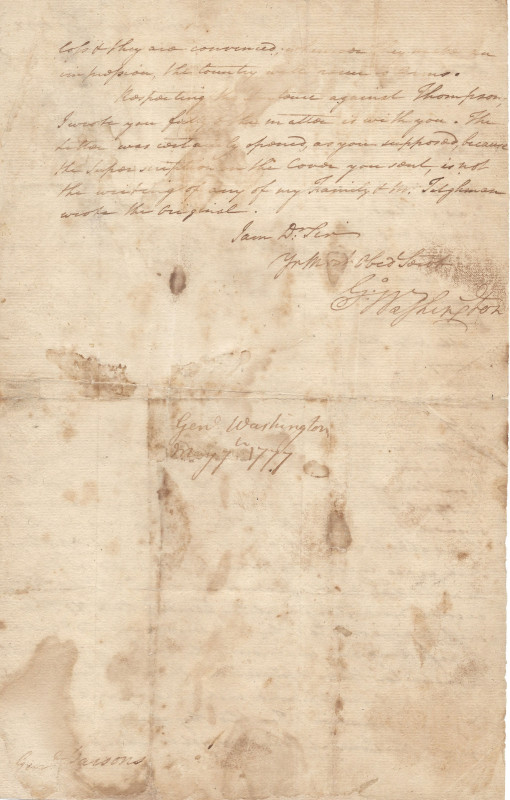 loss & they are convinced, an
impression, the Country will arms.
Respecting the against Thompson,
I wrote you matter is with you. The
Letter was certainly opened, as you supposed, because
the Superscription on the Cover you sent, is not
the writing of any of my Family, & Mr. Tilghman
wrote the Original.
I am Dr. Sir
Yr Most Obed Servt
Go. Washington
Genl. Washington
May 7th 1777
Genl Parsons